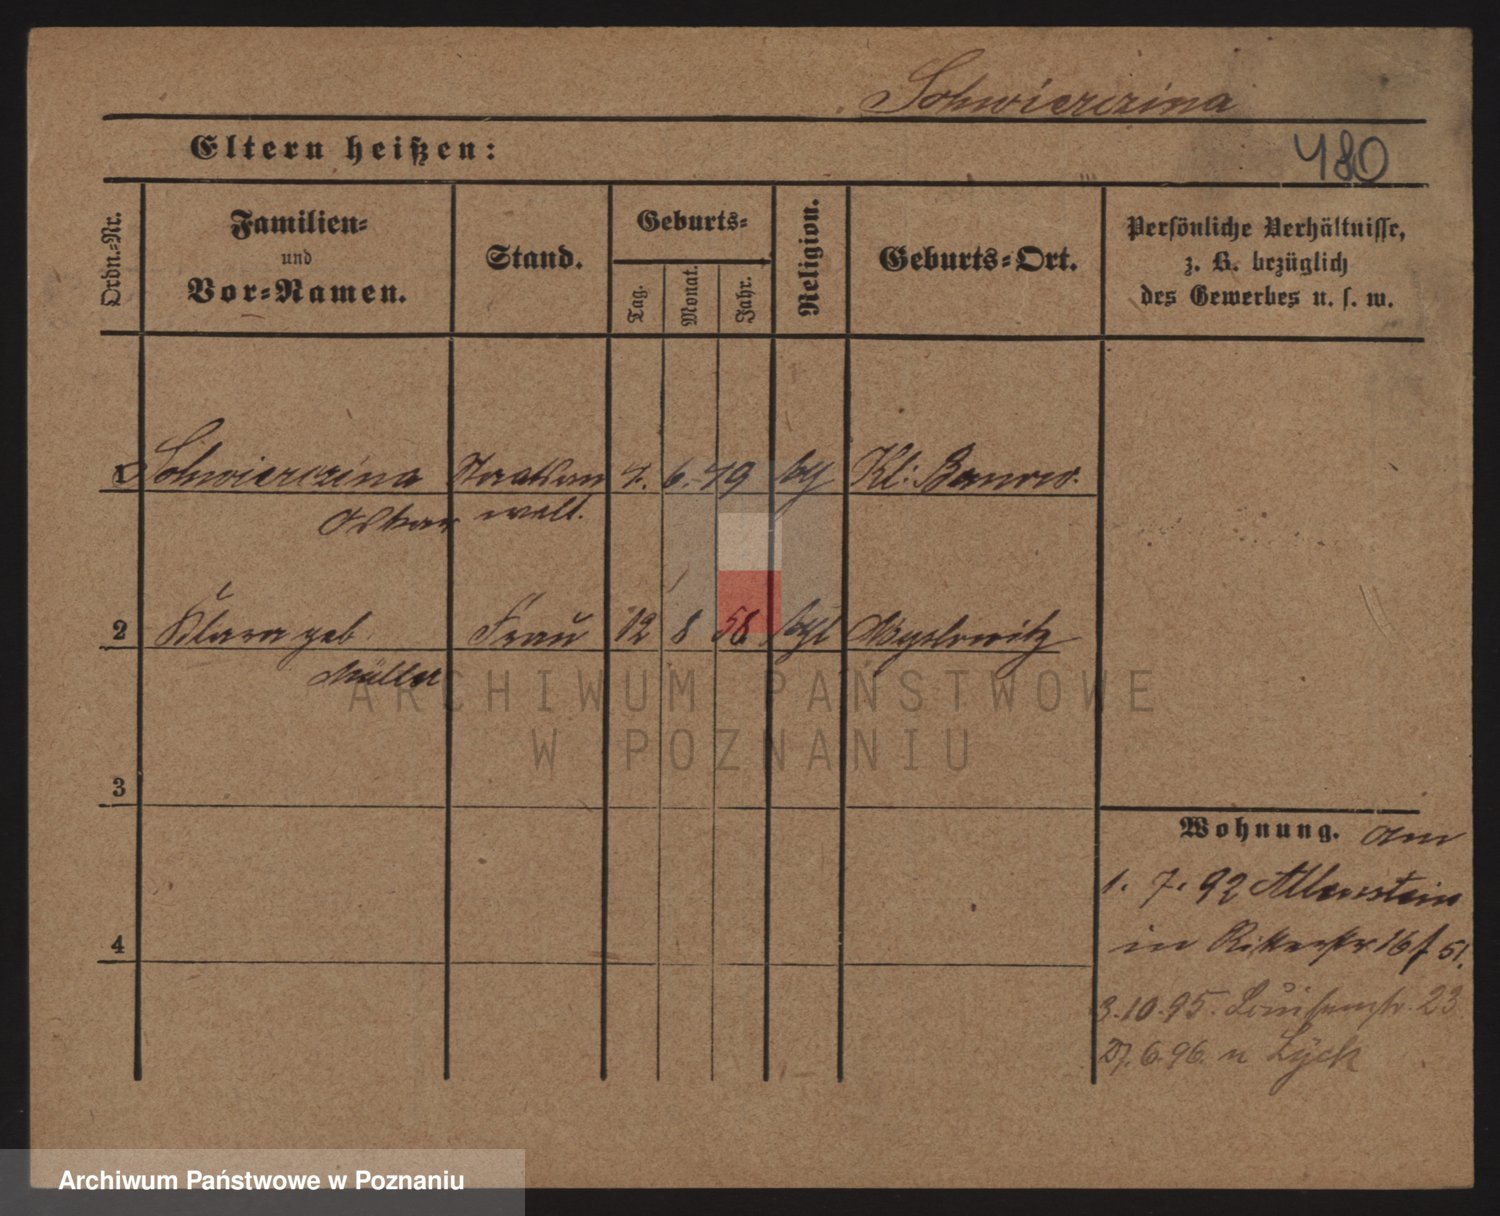 Schwierczina
Eltern heißen:
480
Ordn.-Nr.
Familien-
und
Vor-Namen.
Stand.
Geburts-
Tag.
Monat.
Jahr.
Religion.
Geburts-Ort.
Persönliche Verhältnisse,
z. B. bezüglich
des Gewerbes u. s. w.
1 Schwierczina Staatsan 7. 6. 49 Kl:
Oskar walt.
2 Klara geb. Frau 12 8 58. Myslowitz
Müller
3
4
Wohnung. am
1. 7. 92 Allenstein
in Ritterstr 16
3.10.95. Louisenstr. 23
27.6.96. n Lyck
ARCHIWUM PAŃSTWOWE
W POZNANIU
Archiwum Państwowe w Poznaniu